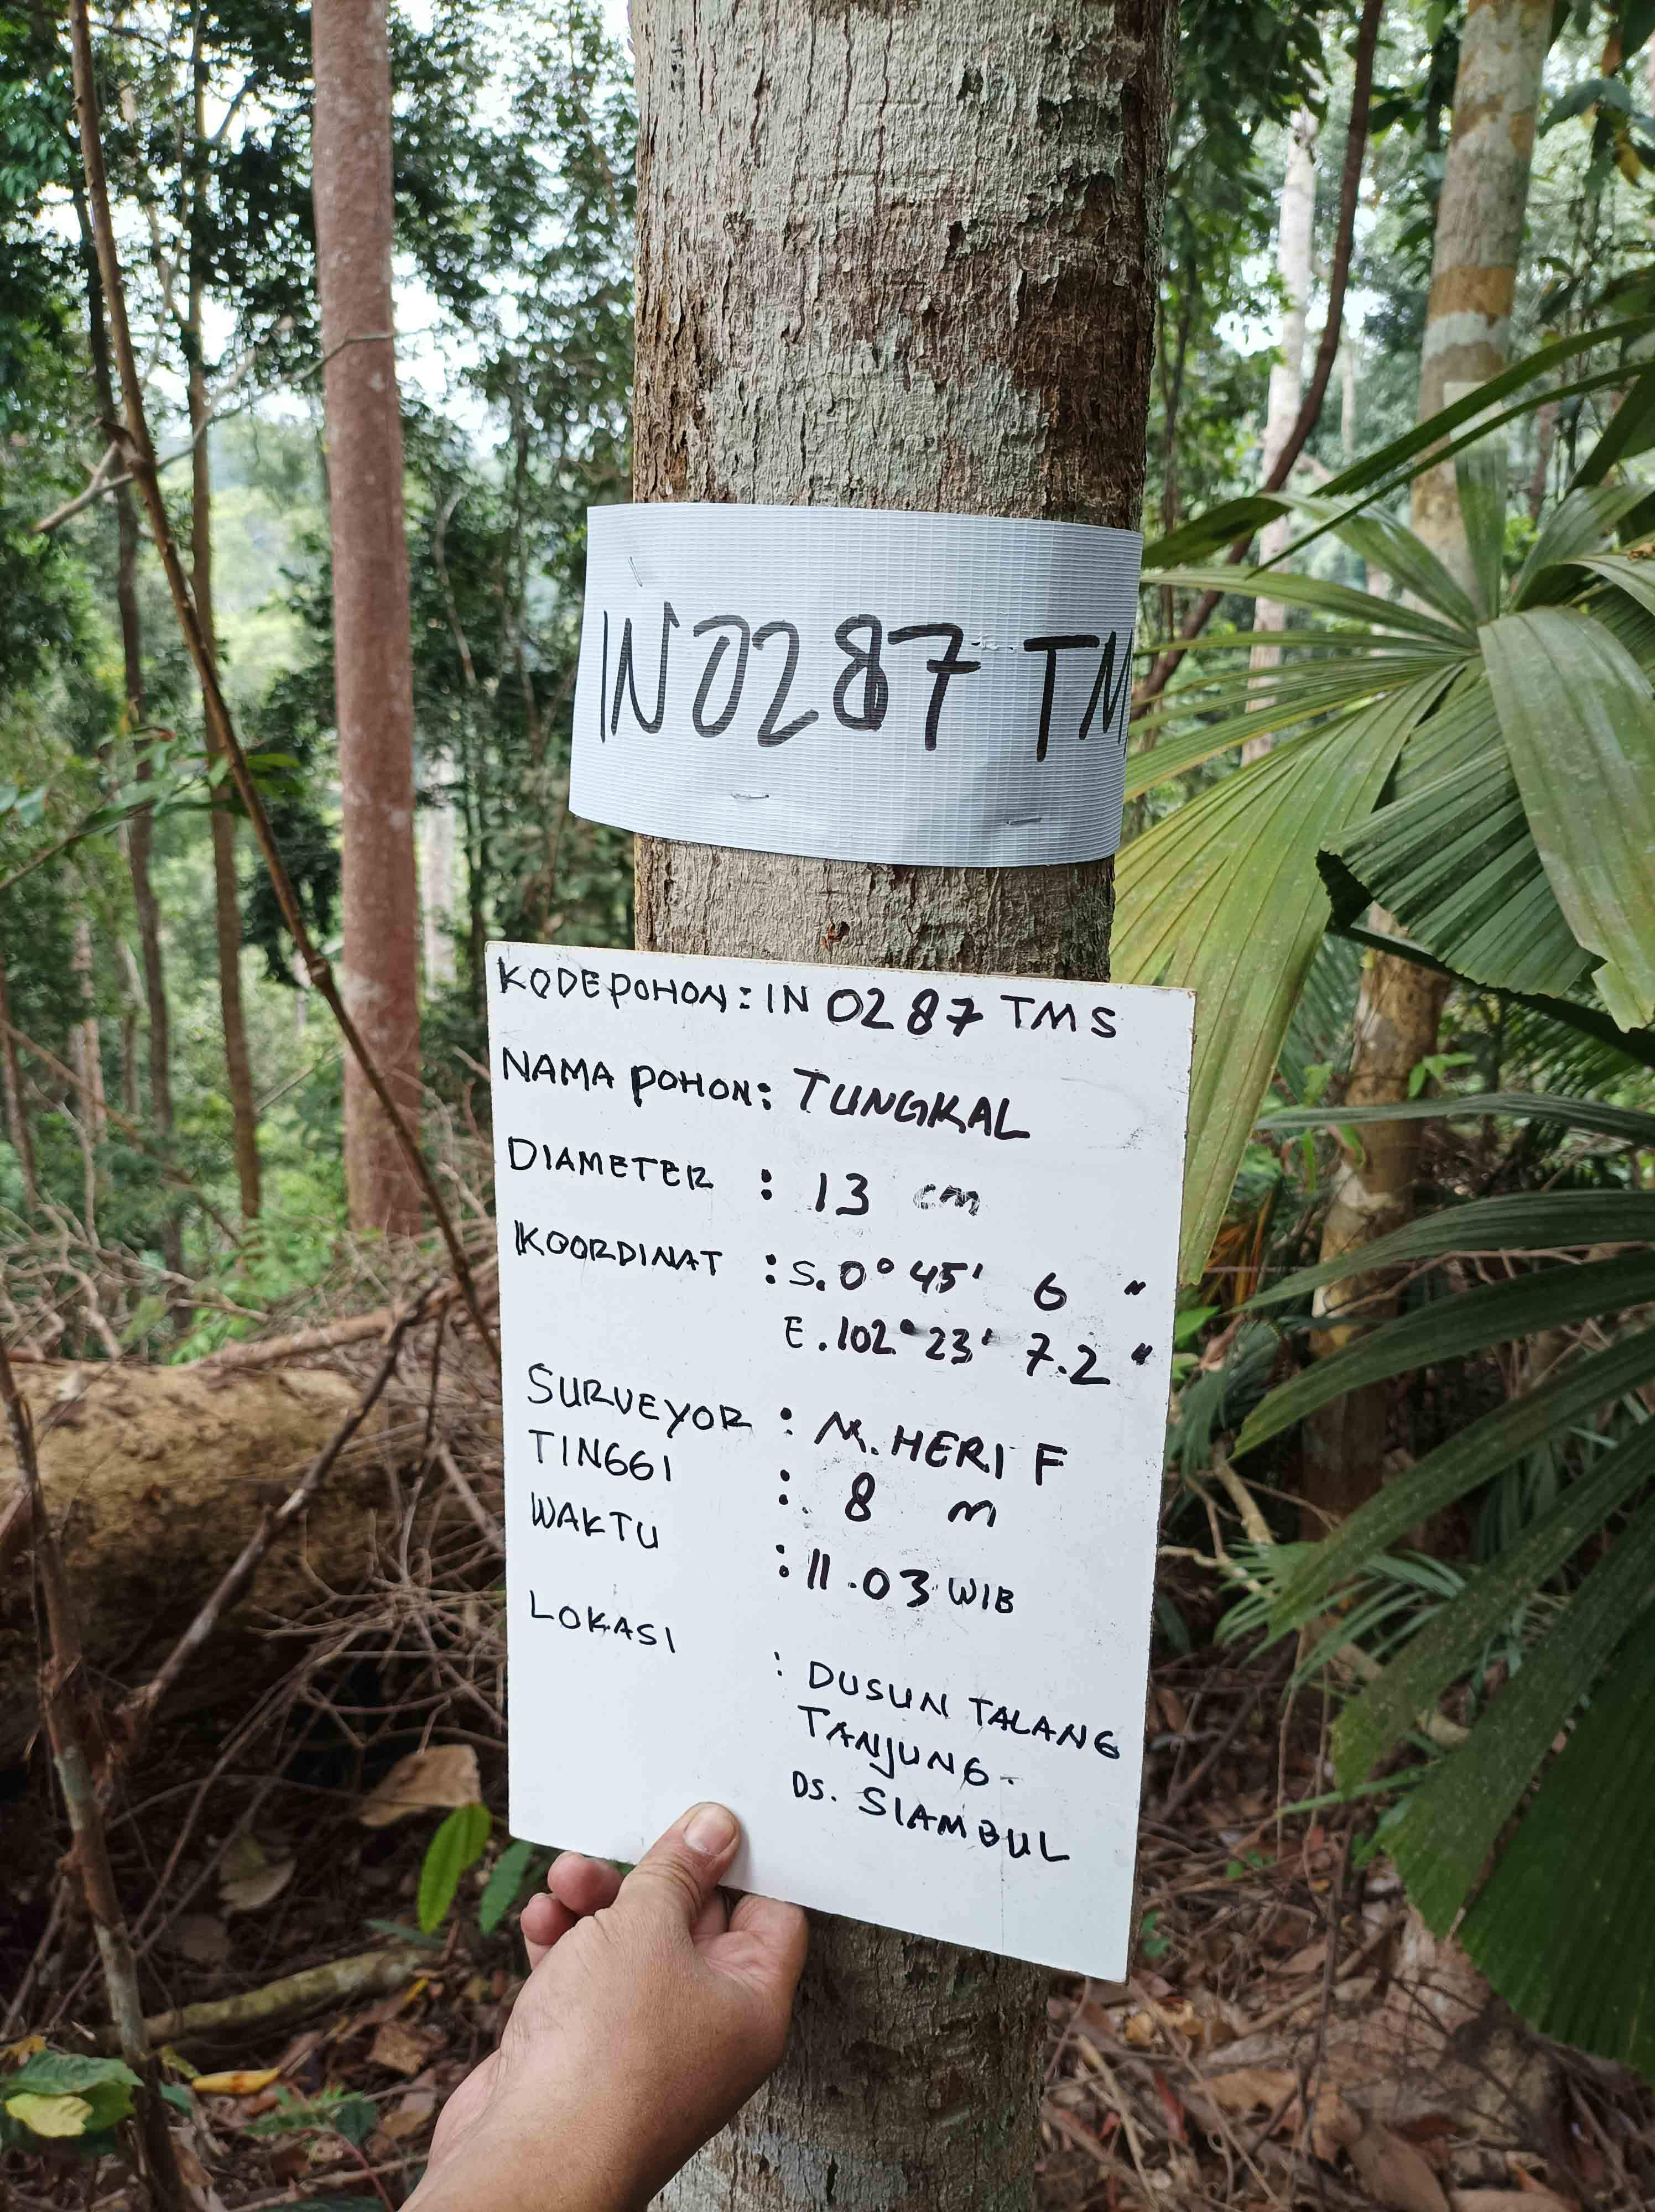 IN0287 TM
KODE POHON : IN 0287 TMS
NAMA POHON : TUNGKAL
DIAMETER : 13 cm
KOORDINAT : S. 0° 45' 6 "
E. 102° 23' 7.2 "
SURVEYOR : M. HERI F
TINGGI : 8 m
WAKTU : 11.03 WIB
LOKASI : DUSUN TALANG
TANJUNG.
DS. SIAMBUL